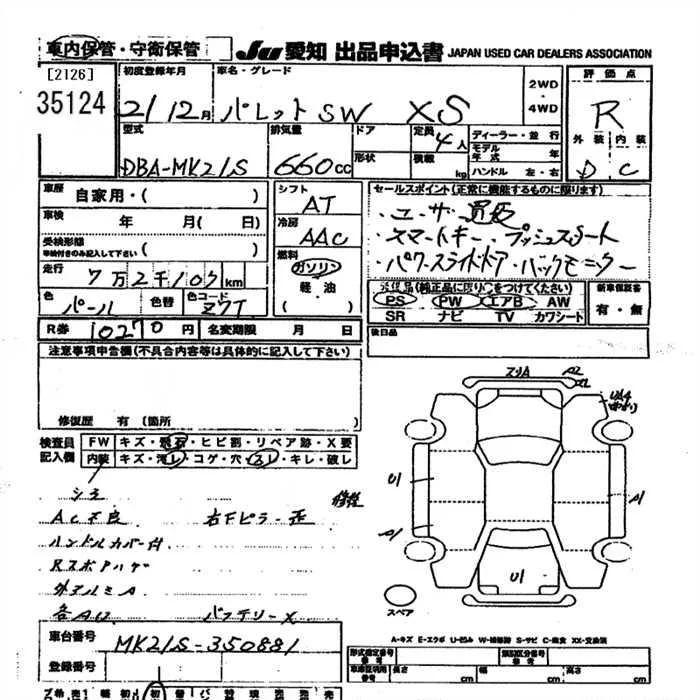 車内保管・守衛保管 JU 愛知 出品申込書 JAPAN USED CAR DEALERS ASSOCIATION
[2126]
35124
初度登録年月 車名・グレード 2WD ・ 4WD 評価点
21/12月 パレットSW XS R
型式 排気量 ドア 定員 4人 ディーラー・並行 外装 内装
DBA-MK21S 660cc 形状 積載 kg モデル年式 年 ハンドル 左・右 D C
車歴 自家用・( ) シフト AT セールスポイント(正常に機能するものに限ります)
車検 年 月( 日) 冷房 AAC ・ユーザー買取
受検形態 車検付きのみ記入して下さい ( ) ・スマートキー プッシュスタート
走行 7万2千105km 燃料 ガソリン・軽・油 ( ) ・パワースライドドア・バックモニター
色 パール 色替 色コード Z7T 装備品(純正品に限り○をつけてください) 新車保証書
PS PW エアB AW 有・無
SR ナビ TV カワシート
R券 10270円 名変期限 月 日 後日品
注意事項申告欄(不具合内容等は具体的に記入して下さい)
修復歴 有(箇所 )
検査員記入欄 FW キズ・飛石・ヒビ割・リペア跡・X要
内装 キズ・汚レ・コゲ・穴・スレ・キレ・破レ
シミ 修復
AC不良 右Fピラー歪
ハンドルカバー付
Rスポアハゲ
外アルミA
各AU バッテリーX
A2
U1
A1
A1
U1
スペア
A-キズ E-エクボ U-凹み W-補修跡 S-サビ C-腐食 XX-交換済
車台番号 MK21S-350881
登録番号
形式指定番号 類別区分番号
車庫証明用 長さ cm 幅 cm 高さ cm